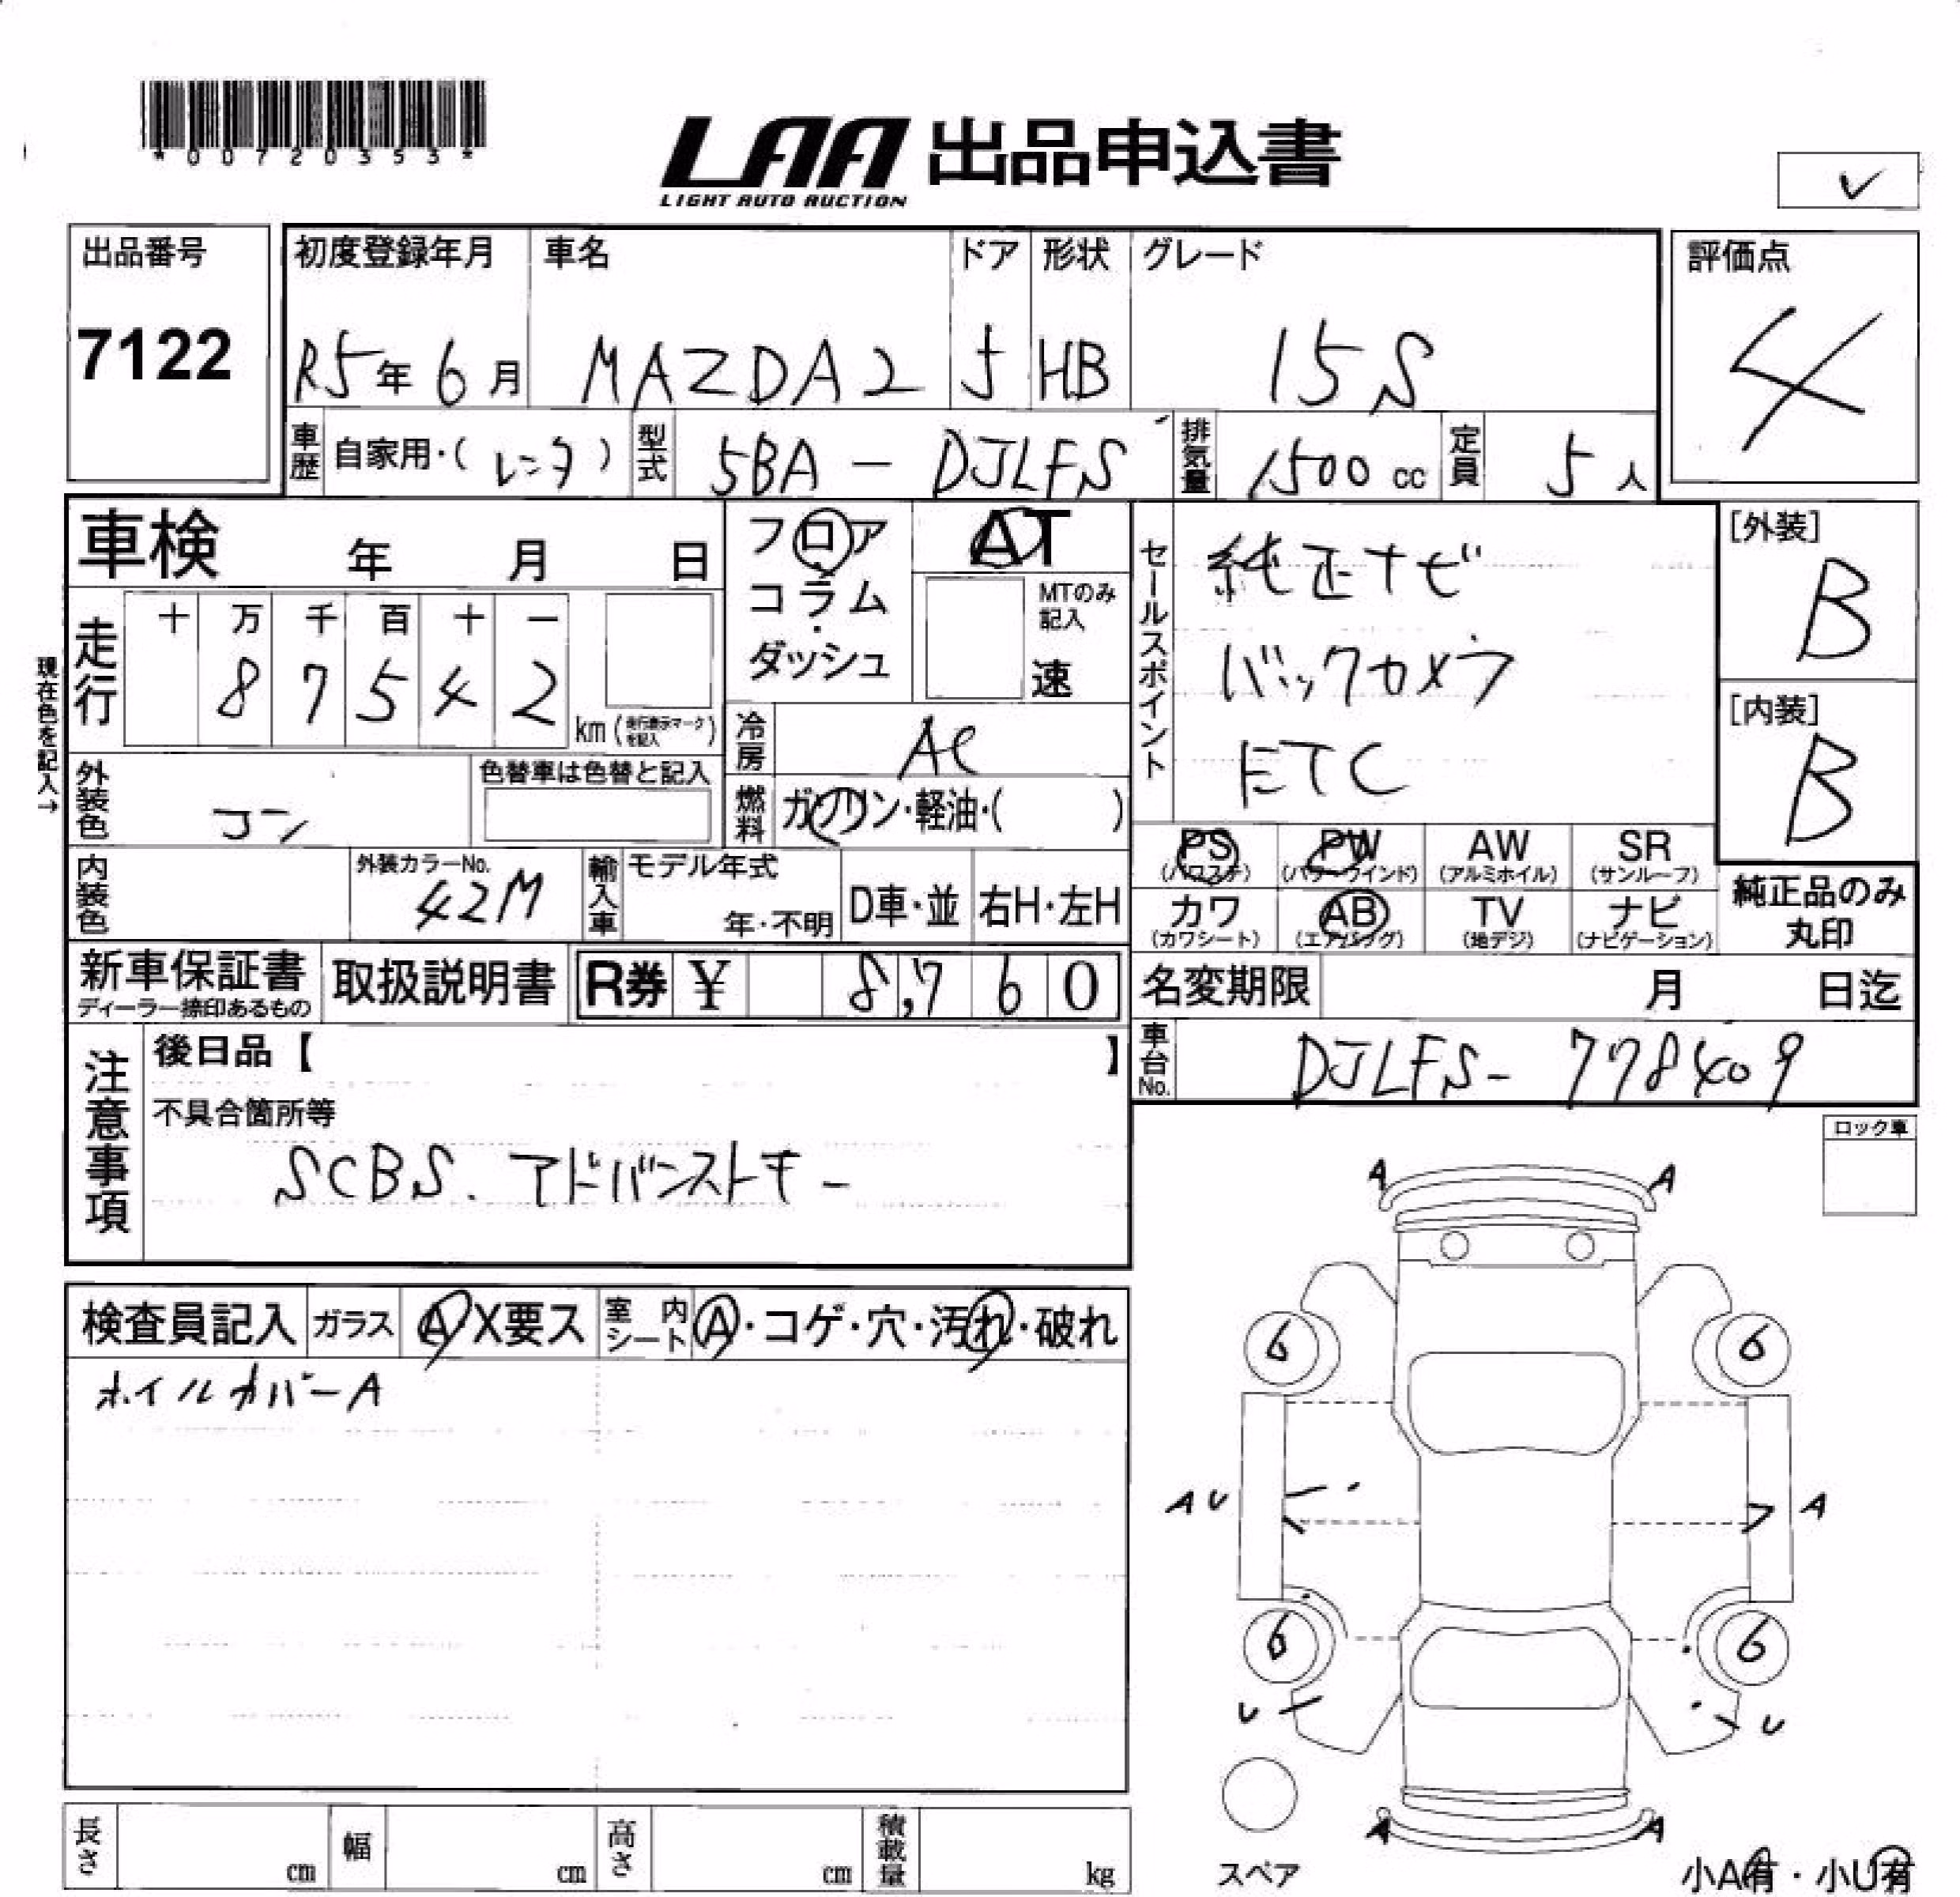 *00720353*
LAA 出品申込書
LIGHT AUTO AUCTION
✓
出品番号
7122
初度登録年月 車名 ドア 形状 グレード
R5年 6月 MAZDA2 5 HB 15S
評価点
4
車歴 自家用・(レンタ) 型式 5BA - DJLFS 排気量 1500cc 定員 5人
車検 年 月 日
フロア・コラム・ダッシュ
AT
MTのみ記入
速
セールスポイント
純正ナビ
バックカメラ
ETC
[外装]
B
[内装]
B
現在色を記入→
走行 十 万 千 百 十 一
8 7 5 4 2 km(走行表示マークを記入)
冷房 AC
外装色 コン
色替車は色替と記入
燃料 ガソリン・軽油・( )
内装色
外装カラーNo.
42M
輸入車 モデル年式
年・不明 D車・並 右H・左H
PS (パワステ) PW (パワーウインド) AW (アルミホイル) SR (サンルーフ)
カワ (カワシート) AB (エアバッグ) TV (地デジ) ナビ (ナビゲーション)
純正品のみ
丸印
新車保証書
ディーラー捺印あるもの
取扱説明書 R券 ¥ 8,760
名変期限 月 日迄
車台No. DJLFS-778409
注意事項
後日品【 】
不具合箇所等
SCBS. アドバンストキー
ロック車
検査員記入 ガラス A X要ス 室内シート A・コゲ・穴・汚れ・破れ
ホイルカバーA
A A
6 6
A U A
6 6
U U
A A
スペア
小A有・小U有
長さ cm 幅 cm 高さ cm 積載量 kg